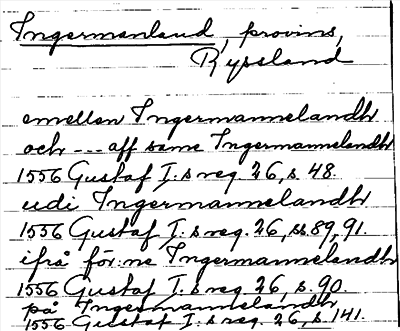 Ingermanland, provins,
Ryssland
emellan Ingermannelandh
och --- aff same Ingermannelandh
1556 Gustaf I:s reg. 26, s. 48.
udi Ingermannelandh
1556 Gustaf I:s reg. 26, ss 89, 91.
ifrå för:ne Ingermannelandh
1556 Gustaf I:s reg. 26, s. 90
på Ingermannelandh
1556 Gustaf I:s reg. 26, s. 141.